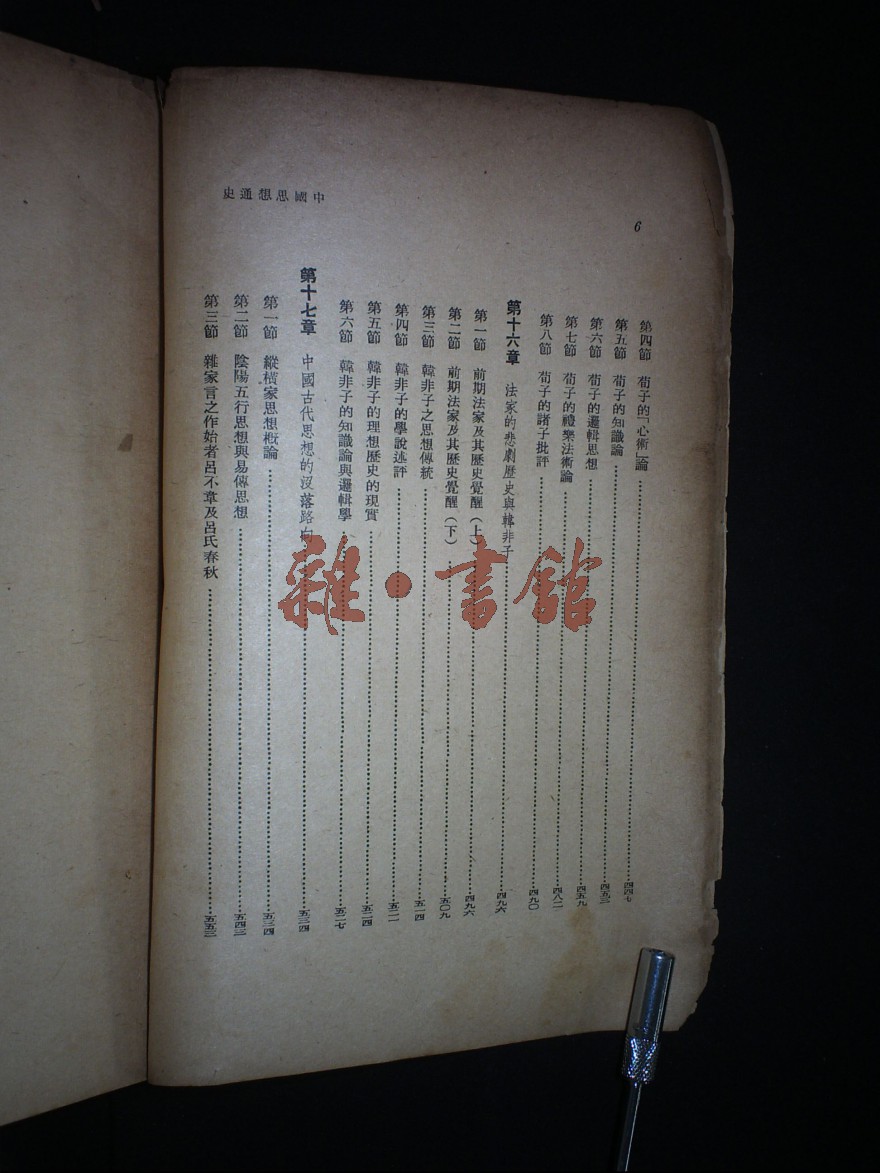 中國思想通史
6
第四節 荀子的「心術」論……四四七
第五節 荀子的知識論……四五三
第六節 荀子的邏輯思想……四五九
第七節 荀子的禮樂法術論……四八二
第八節 荀子的諸子批評……四九〇
第十六章 法家的悲劇歷史與韓非子……四九六
第一節 前期法家及其歷史覺醒(上)……四九六
第二節 前期法家及其歷史覺醒(下)……五〇九
第三節 韓非子之思想傳統……五一四
第四節 韓非子的學說述評……五二一
第五節 韓非子的理想歷史的現實……五二四
第六節 韓非子的知識論與邏輯學……五二七
第十七章 中國古代思想的沒落路向……五三四
第一節 縱橫家思想概論……五三四
第二節 陰陽五行思想與易傳思想……五四三
第三節 雜家言之作始者呂不韋及呂氏春秋……五五三
雜·書館